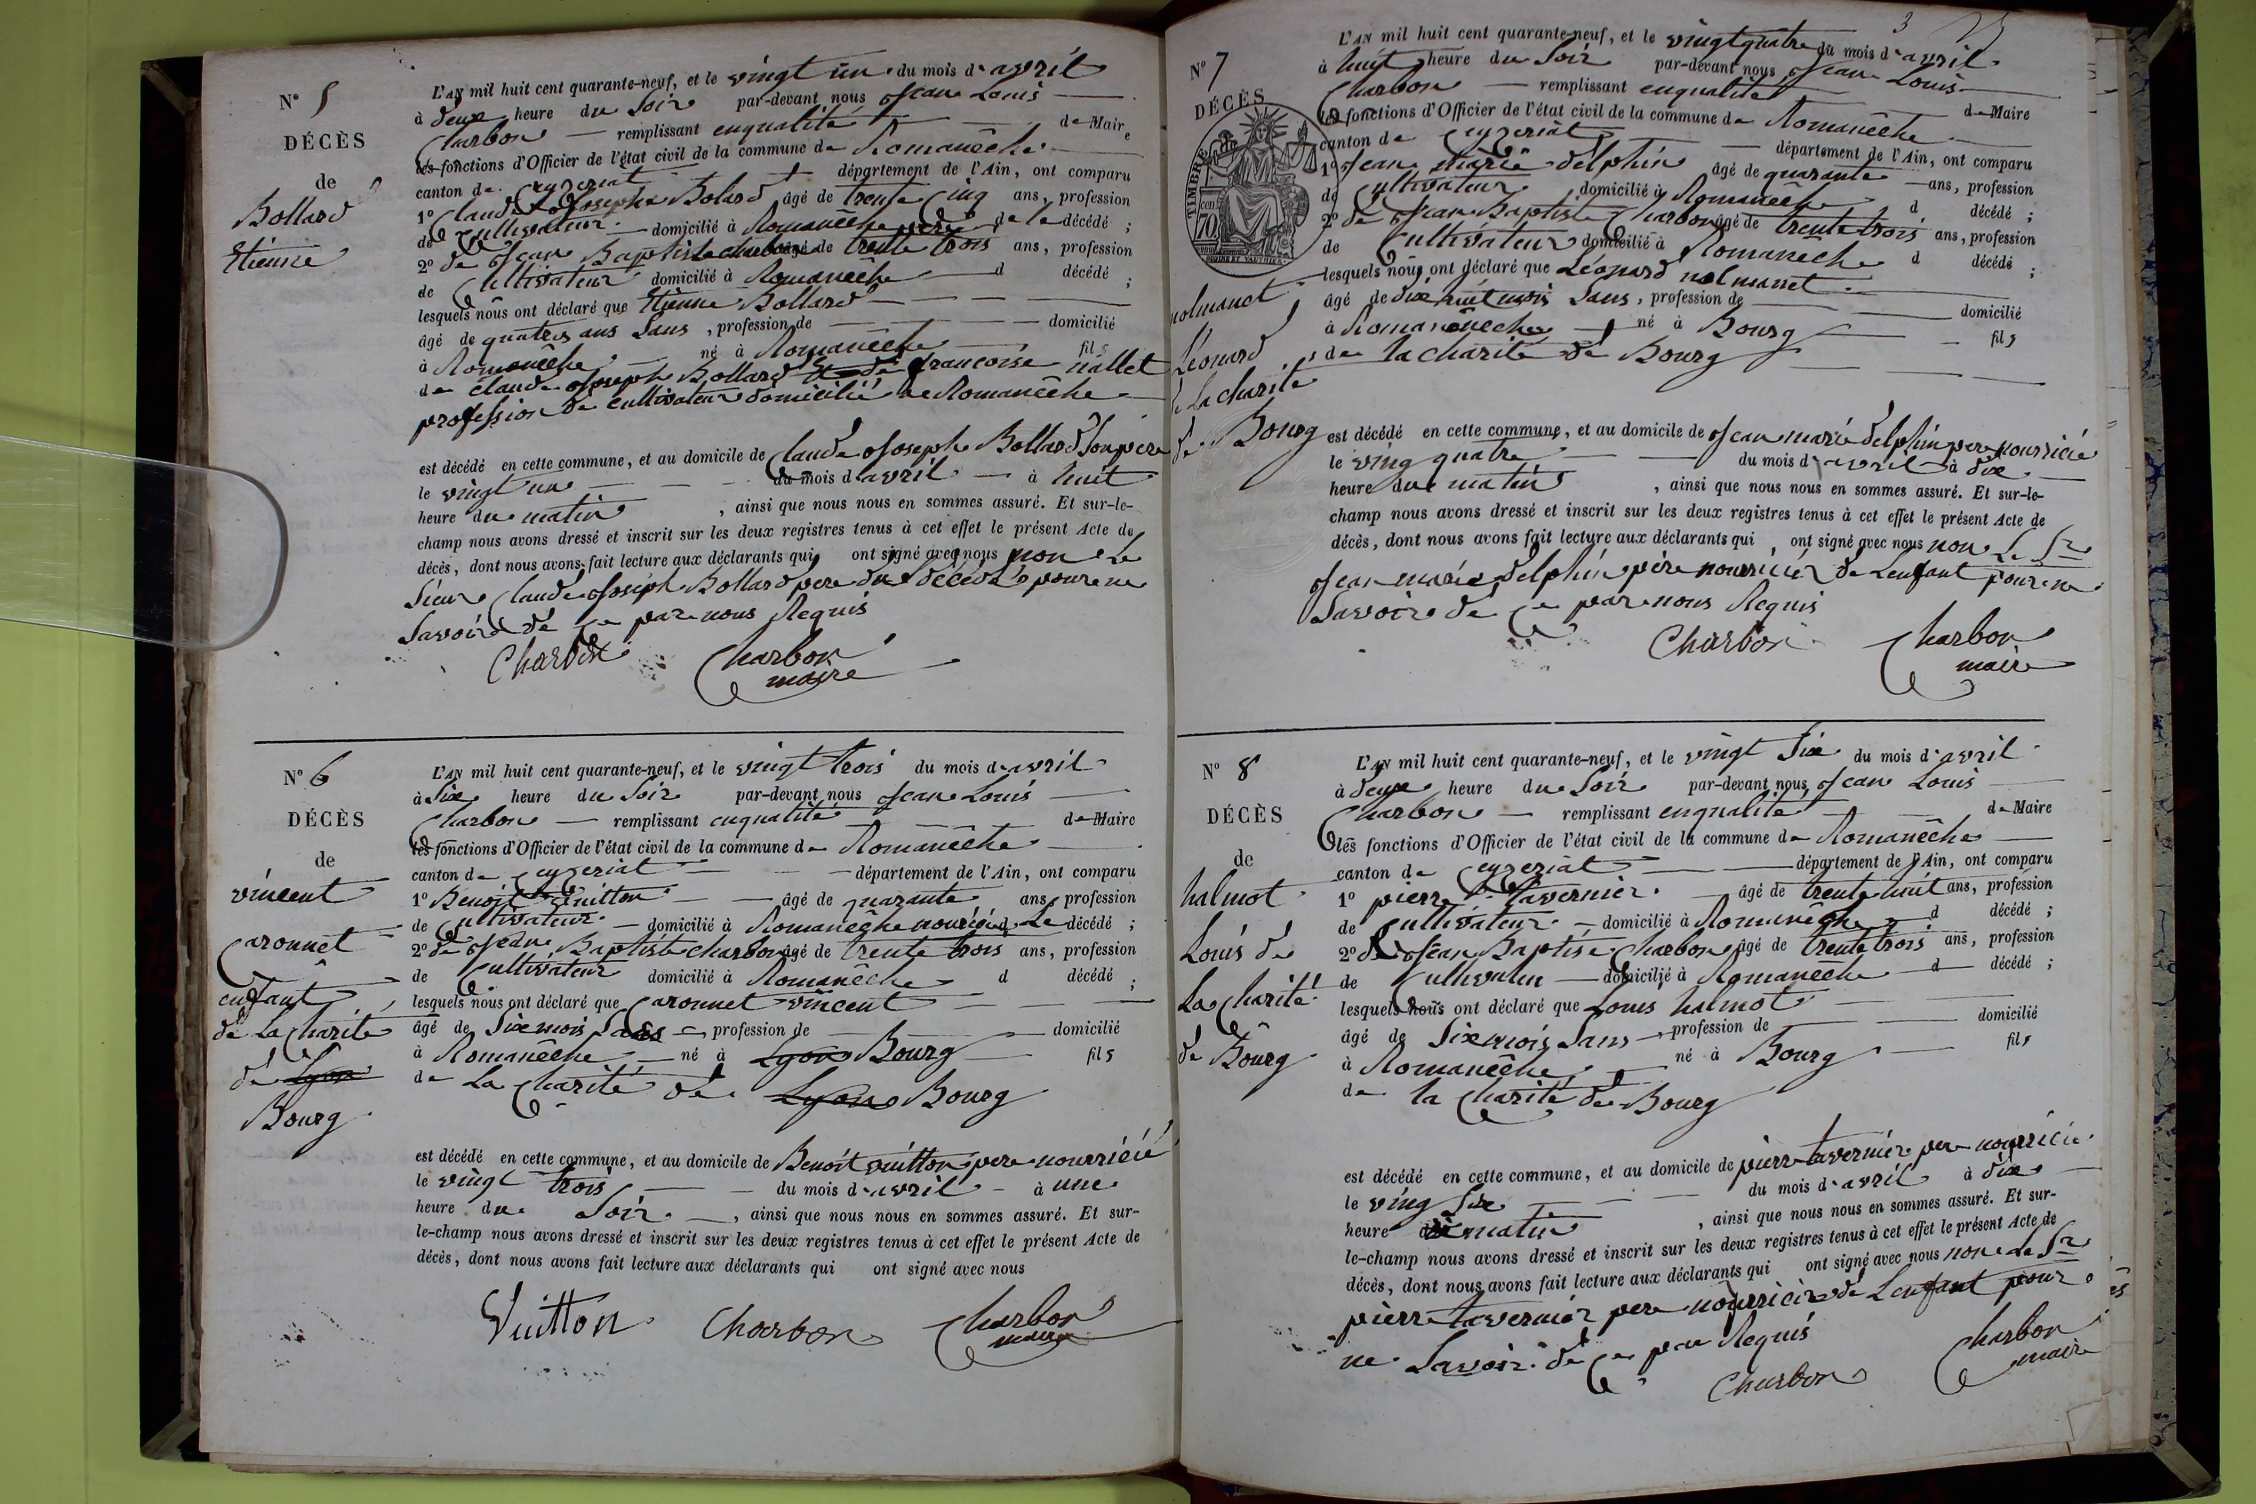 N° 5
DÉCÈS
de
Bollard
Etienne
L'AN mil huit cent quarante-neuf, et le vingt un du mois d'avril
à deux heure du Soir par-devant nous Jean Louis
Charbon remplissant enqualité de Maire
les fonctions d'Officier de l'état civil de la commune de Romanêche
canton de Ceyzeriat département de l'Ain, ont comparu
1° Claude Joseph Bolard âgé de trente Cinq ans, profession
de Cultivateur domicilié à Romanêche père de le décédé ;
2° de Jean Baptiste charbon âgé de trente trois ans, profession
de Cultivateur domicilié à Romanêche d décédé ;
lesquels nous ont déclaré que Etienne Bollard
âgé de quatres ans Sans, profession de domicilié
à Romanêche né à Romanêche fils
de claude Joseph Bollard Et de francoise nallet
profession de cultivateur domicilié de Romanêche
est décédé en cette commune, et au domicile de Claude Joseph Bollard Son pere
le vingt un du mois d'avril à huit
heure du matin , ainsi que nous nous en sommes assuré. Et sur-le-
champ nous avons dressé et inscrit sur les deux registres tenus à cet effet le présent Acte de
décès, dont nous avons fait lecture aux déclarants qui ont signé avec nous non Le
Sieur Claude Joseph Bollard pere du décédé pour ne
Savoir de Ce par nous Requis
Charbon Charbon
maire
N° 6
DÉCÈS
de
vincent
Caronnet
enfant
de La Charité
de Lyon
Bourg
L'AN mil huit cent quarante-neuf, et le vingt trois du mois d'avril
à Six heure du Soir par-devant nous Jean Louis
Charbon remplissant enqualité de Maire
les fonctions d'Officier de l'état civil de la commune de Romanêche
canton de Ceyzeriat département de l'Ain, ont comparu
1° Benoit Vuitton âgé de quarante ans, profession
de Cultivateur domicilié à Romanêche Le décédé ;
2° de Jean Baptiste charbon âgé de trente trois ans, profession
de Cultivateur domicilié à Romanêche d décédé ;
lesquels nous ont déclaré que Caronnet vincent
âgé de Six mois Sans profession de domicilié
à Romanêche né à Lyon Bourg fils
de La Charité de Lyon Bourg
est décédé en cette commune, et au domicile de Benoit vuitton pere nourricié
le vingt trois du mois d'avril à une
heure du Soir , ainsi que nous nous en sommes assuré. Et sur-
le-champ nous avons dressé et inscrit sur les deux registres tenus à cet effet le présent Acte de
décès, dont nous avons fait lecture aux déclarants qui ont signé avec nous
Vuitton Charbon Charbon
maire
3
N° 7
DÉCÈS
TIMBRE
70
nolmanet
Léonard
de La charité
de Bourg
L'AN mil huit cent quarante-neuf, et le vingt quatre du mois d'avril
à huit heure du Soir par-devant nous Jean Louis
Charbon remplissant enqualité de Maire
les fonctions d'Officier de l'état civil de la commune de Romanêche
canton de Ceyzeriat département de l'Ain, ont comparu
1° Jean marie delphin âgé de quarante ans, profession
de Cultivateur domicilié à Romanêche d décédé ;
2° de Jean Baptiste Charbon âgé de trente trois ans, profession
de Cultivateur domicilié à Romanêche d décédé ;
lesquels nous ont déclaré que Léonard nolmanet
âgé de dix huit mois Sans, profession de domicilié
à Romanêche né à Bourg fils
de la charité de Bourg
est décédé en cette commune, et au domicile de Jean marie delphin pere nourricié
le ving quatre du mois d'avril à dix
heure du matin , ainsi que nous nous en sommes assuré. Et sur-le-
champ nous avons dressé et inscrit sur les deux registres tenus à cet effet le présent Acte de
décès, dont nous avons fait lecture aux déclarants qui ont signé avec nous non Le Sr
Jean marie delphin père nourricier de Lenfant pour ne
Savoir de Ce par nous Requis
Charbon Charbon
maire
N° 8
DÉCÈS
de
halmot
Louis de
La Charité
de Bourg
L'AN mil huit cent quarante-neuf, et le vingt Six du mois d'avril
à deux heure du Soir par-devant nous Jean Louis
Charbon remplissant enqualité de Maire
les fonctions d'Officier de l'état civil de la commune de Romanêche
canton de Ceyzeriat département de l'Ain, ont comparu
1° pierre tavernier âgé de trente huit ans, profession
de Cultivateur domicilié à Romanêche d décédé ;
2° de Jean Baptiste Charbon âgé de trente trois ans, profession
de Cultivateur domicilié à Romanêche d décédé ;
lesquels nous ont déclaré que Louis halmot
âgé de Six mois Sans profession de domicilié
à Romanêche né à Bourg fils
de la Charité de Bourg
est décédé en cette commune, et au domicile de pierre tavernier pere nourricié
le ving Six du mois d'avril à dix
heure du matin , ainsi que nous nous en sommes assuré. Et sur-
le-champ nous avons dressé et inscrit sur les deux registres tenus à cet effet le présent Acte de
décès, dont nous avons fait lecture aux déclarants qui ont signé avec nous non Le Sr
pierre tavernier pere nourricier de Lenfant pour
ne Savoir de Ce par Requis
Charbon Charbon
maire